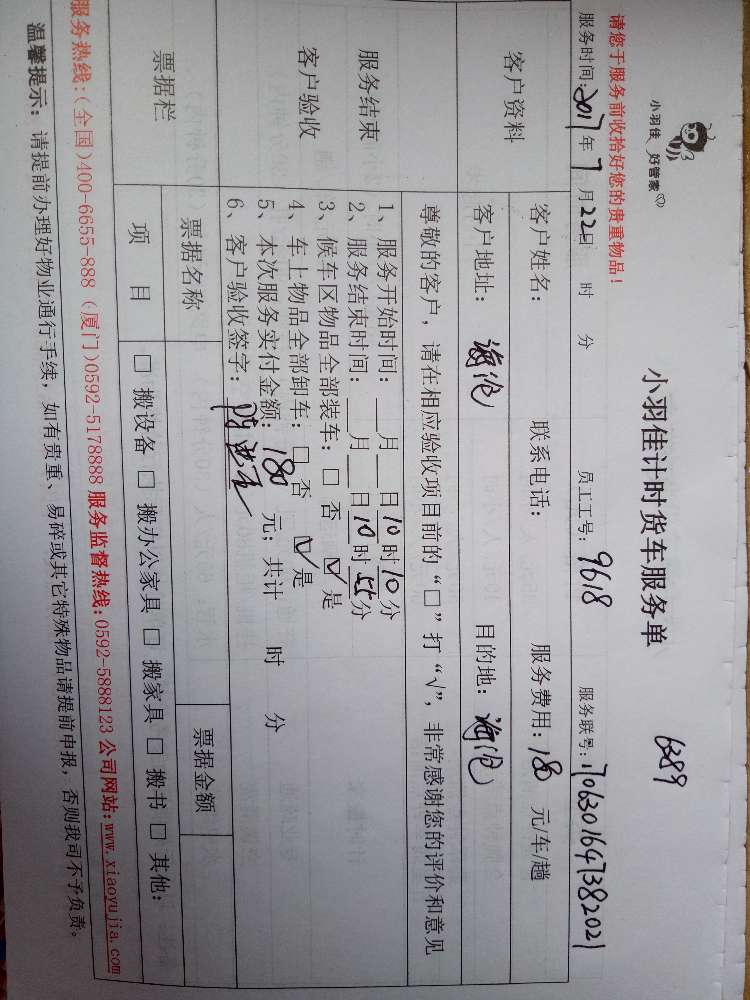 小羽佳 好管家
小羽佳计时货车服务单
6389
请您于服务前收拾好您的贵重物品！
服务时间: 2017 年 7 月 22日 时 分 员工工号: 9618 服务联号: 1706301647382021
客户资料
客户姓名： 联系电话： 服务费用: 180 元/车/趟
客户地址： 海沧 目的地： 海沧
尊敬的客户，请在相应验收项目前的“□”打“√”，非常感谢您的评价和意见
服务结束
客户验收
1、服务开始时间: __月__日10时10分
2、服务结束时间: __月__日10时55分
3、候车区物品全部装车: □ 否 ☑ 是
4、车上物品全部卸车: □ 否 ☑ 是
5、本次服务实付金额: 180 元；共计 时 分
6、客户验收签字:
票据栏
票据名称 票据金额
项 目 □ 搬设备 □ 搬办公家具 □ 搬家具 □ 搬书 □ 其他:
服务热线:(全国)400-6655-888 (厦门)0592-5178888 服务监督热线:0592-5888123 公司网站:www.xiaoyujia.com
温馨提示: 请提前办理好物业通行手续，如有贵重、易碎或其它特殊物品请提前申报，否则我司不予负责。